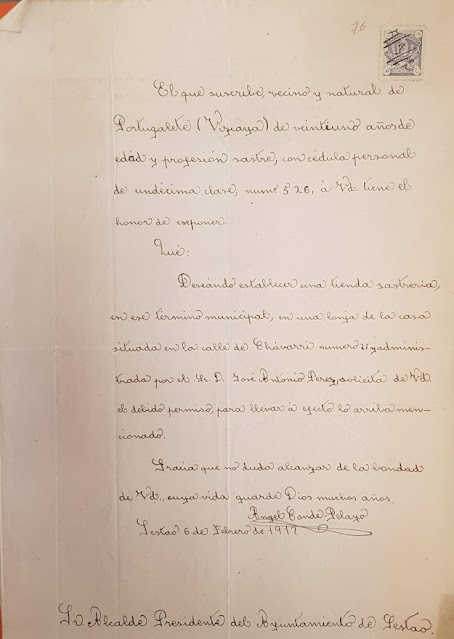 76
El que suscribe, vecino y natural de
Portugalete (Vizcaya) de veintiuno años de
edad y profesión sastre, con cédula personal
de undécima clase, num.º 526, á Vd. tiene el
honor de exponer.
Qué:
Deseándo establecer una tienda sastreria,
en ese término municipal, en una lonja de la casa
situada en la calle de Chávarri numero 21 y adminis-
trada por el Sr. D. José Antonio Perez, solicita de Vd.
el debido permiso, para llevar á efecto lo arriba men-
cionado.
Gracia que no duda alcanzar de la bondad
de Vd., cuya vida guarde Dios muchos años.
Angel Conde Pelayo
Sestao 6 de Febrero de 1917
Sr. Alcalde Presidente del Ayuntamiento de Sestao.